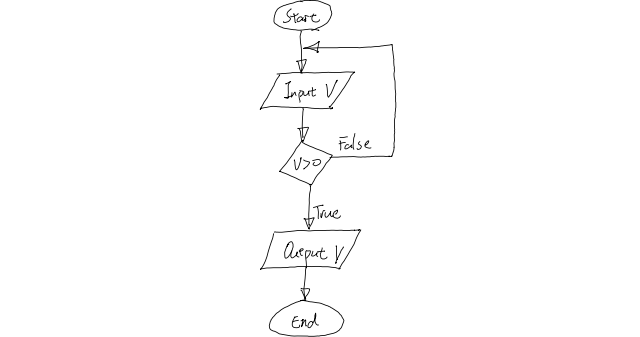 Start
Input V
V>0
False
True
Output V
End